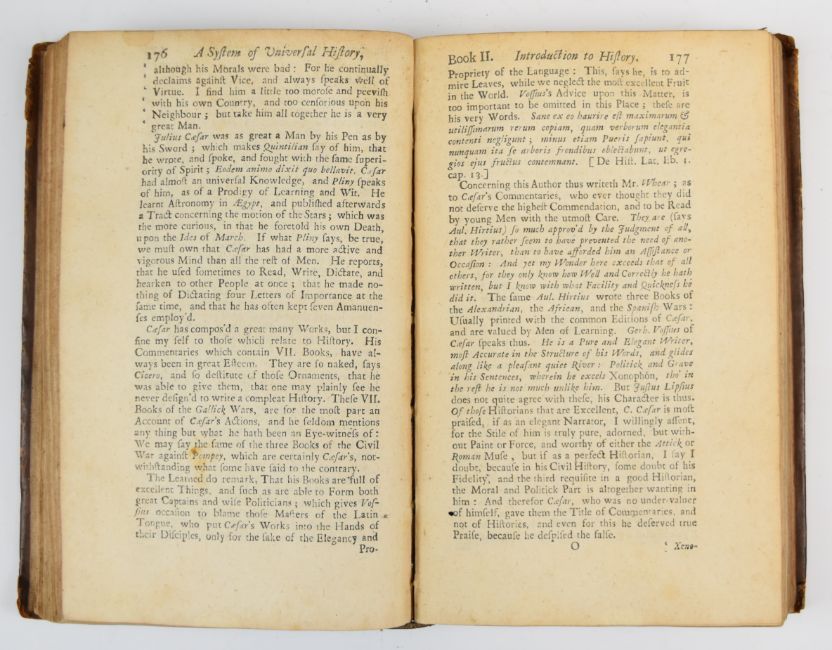 176 A Syſtem of Univerſal Hiſtory,
' although his Morals were bad : For he continually
' declaims againſt Vice, and always ſpeaks well of
' Virtue. I find him a little too moroſe and peeviſh
' with his own Country, and too cenſorious upon his
' Neighbour ; but take him all together he is a very
great Man.
Julius Cæſar was as great a Man by his Pen as by
his Sword ; which makes Quintilian ſay of him, that
he wrote, and ſpoke, and fought with the ſame ſuperi-
ority of Spirit ; Eodem animo dixit quo bellavit. Cæſar
had almoſt an univerſal Knowledge, and Pliny ſpeaks
of him, as of a Prodigy of Learning and Wit. He
learnt Aſtronomy in Ægypt, and publiſhed afterwards
a Tract concerning the motion of the Stars ; which was
the more curious, in that he foretold his own Death,
upon the Ides of March. If what Pliny ſays, be true,
we muſt own that Cæſar has had a more active and
vigorous Mind than all the reſt of Men. He reports,
that he uſed ſometimes to Read, Write, Dictate, and
hearken to other People at once ; that he made no-
thing of Dictating four Letters of Importance at the
ſame time, and that he has often kept ſeven Amanuen-
ſes employ'd.
Cæſar has compos'd a great many Works, but I con-
fine my ſelf to thoſe which relate to Hiſtory. His
Commentaries which contain VII. Books, have al-
ways been in great Eſteem. They are ſo naked, ſays
Cicero, and ſo deſtitute of thoſe Ornaments, that he
was able to give them, that one may plainly ſee he
never deſign'd to write a compleat Hiſtory. Theſe VII.
Books of the Gallick Wars, are for the moſt part an
Account of Cæſar's Actions, and he ſeldom mentions
any thing but what he hath been an Eye-witneſs of :
We may ſay the ſame of the three Books of the Civil
War againſt Pompey, which are certainly Cæſar's, not-
withſtanding what ſome have ſaid to the contrary.
The Learned do remark, That his Books are full of
excellent Things, and ſuch as are able to Form both
great Captains and wiſe Politicians ; which gives Voſ-
ſius occaſion to blame thoſe Maſters of the Latin
Tongue, who put Cæſar's Works into the Hands of
their Diſciples, only for the ſake of the Elegancy and
Pro-
Book II. Introduction to Hiſtory. 177
Propriety of the Language : This, ſays he, is to ad-
mire Leaves, while we neglect the moſt excellent Fruit
in the World. Voſſius's Advice upon this Matter, is
too important to be omitted in this Place ; theſe are
his very Words. Sane ex eo haurire eſt maximarum &
utiliſſimarum rerum copiam, quam verborum elegantia
contenti negligunt ; minus etiam Pueris ſapiunt, qui
nunquam ita ſe arboris frondibus oblectabunt, ut egre-
gios ejus fructus contemnant. [ De Hiſt. Lat. lib. 1.
cap. 13.]
Concerning this Author thus writeth Mr. Whear ; as
to Cæſar's Commentaries, who ever thought they did
not deſerve the higheſt Commendation, and to be Read
by young Men with the utmoſt Care. They are (ſays
Aul. Hirtius) ſo much approv'd by the Judgment of all,
that they rather ſeem to have prevented the need of ano-
ther Writer, than to have afforded him an Aſſiſtance or
Occaſion : And yet my Wonder here exceeds that of all
others, for they only know how Well and Correctly he hath
written, but I know with what Facility and Quickneſs he
did it. The ſame Aul. Hirtius wrote three Books of
the Alexandrian, the African, and the Spaniſh Wars :
Uſually printed with the common Editions of Cæſar,
and are valued by Men of Learning. Gerh. Voſſius of
Cæſar ſpeaks thus. He is a Pure and Elegant Writer,
moſt Accurate in the Structure of his Words, and glides
along like a pleaſant quiet River : Politick and Grave
in his Sentences, wherein he excels Xenophon, tho' in
the reſt he is not much unlike him. But Juſtus Lipſius
does not quite agree with theſe, his Character is thus.
Of thoſe Hiſtorians that are Excellent, C. Cæſar is moſt
praiſed, if as an elegant Narrator, I willingly aſſent,
for the Stile of him is truly pure, adorned, but with-
out Paint or Force, and worthy of either the Attick or
Roman Muſe , but if as a perfect Hiſtorian, I ſay I
doubt, becauſe in his Civil Hiſtory, ſome doubt of his
Fidelity, and the third requiſite in a good Hiſtorian,
the Moral and Politick Part is altogether wanting in
him : And therefor Cæſar, who was no under-valuer
of himſelf, gave them the Title of Commentaries, and
not of Hiſtories, and even for this he deſerved true
Praiſe, becauſe he deſpiſed the falſe.
O Xeno-